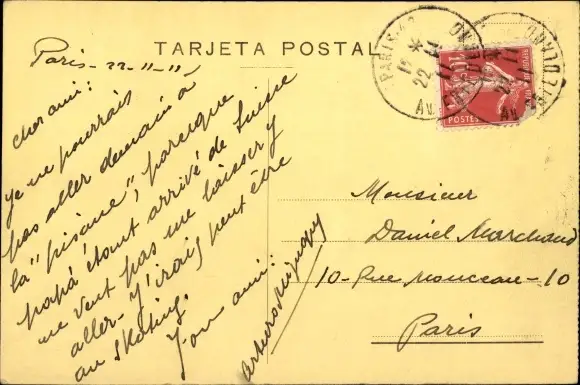 TARJETA POSTAL
Paris-22-11-11
cher ami:
Je ne pourrais
pas aller demain à
la "piscine", parceque
papá étant arrivé de Suisse
ne veut pas me laisser y
aller- J'irais peut être
au skating.
Ton ami:
Arturo
Monsieur
Daniel Marchand
10-Rue Monceau-10
Paris
PARIS
22
11
POSTES